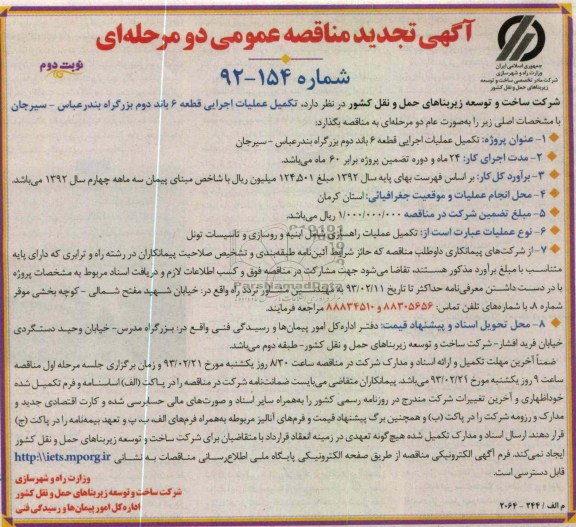 آگهی تجدید مناقصه عمومی دو مرحله‌ای
نوبت دوم
شماره ۱۵۴-۹۲
جمهوری اسلامی ایران
وزارت راه و شهرسازی
شرکت مادر تخصصی ساخت و توسعه
زیربناهای حمل و نقل کشور
شرکت ساخت و توسعه زیربناهای حمل و نقل کشور در نظر دارد، تکمیل عملیات اجرایی قطعه ۶ باند دوم بزرگراه بندرعباس - سیرجان
با مشخصات اصلی زیر را به‌صورت عام دو مرحله‌ای به مناقصه بگذارد:
۱- عنوان پروژه: تکمیل عملیات اجرایی قطعه ۶ باند دوم بزرگراه بندرعباس - سیرجان
۲- مدت اجرای کار: ۲۴ ماه و دوره تضمین پروژه برابر ۶۰ ماه می‌باشد.
۳- برآورد کل کار: بر اساس فهرست بهای پایه سال ۱۳۹۲ مبلغ ۱۲۴,۵۰۱ میلیون ریال با شاخص مبنای پیمان سه ماهه چهارم سال ۱۳۹۲ می‌باشد.
۴- محل انجام عملیات و موقعیت جغرافیائی: استان کرمان
۵- مبلغ تضمین شرکت در مناقصه ۱/۰۰۰/۰۰۰/۰۰۰ ریال می‌باشد.
۶- نوع عملیات عبارت است از: تکمیل عملیات راهسازی شامل ابنیه و روسازی و تاسیسات تونل
۷- از شرکت‌های پیمانکاری داوطلب مناقصه که حائز شرایط آئین‌نامه طبقه‌بندی و تشخیص صلاحیت پیمانکاران در رشته راه و ترابری که دارای پایه
متناسب با مبلغ برآورد مذکور هستند، تقاضا می‌شود جهت مشارکت در مناقصه فوق و کسب اطلاعات لازم و دریافت اسناد مربوط به مشخصات پروژه
با در دست داشتن معرفی‌نامه حداکثر تا تاریخ ۹۳/۰۲/۱۱ به مهندسین مشاور برد راه واقع در: خیابان شهید مفتح شمالی - کوچه بخشی موقر
شماره ۸، با شماره‌های تلفن تماس: ۸۸۳۰۵۶۵۶ و ۸۸۸۳۴۵۱۰ مراجعه فرمایند.
۸- محل تحویل اسناد و پیشنهاد قیمت: دفتر اداره‌کل امور پیمان‌ها و رسیدگی فنی واقع در: بزرگراه مدرس- خیابان وحید دستگردی
خیابان فرید افشار- شرکت ساخت و توسعه زیربناهای حمل و نقل کشور- طبقه دوم می‌باشد.
ضمناً آخرین مهلت تکمیل و ارائه اسناد و مدارک شرکت در مناقصه ساعت ۸/۳۰ روز یکشنبه مورخ ۹۳/۰۲/۲۱ و زمان برگزاری جلسه مرحله اول مناقصه
ساعت ۹ روز یکشنبه مورخ ۹۳/۰۲/۲۱ می‌باشد. پیمانکاران متقاضی می‌بایست ضمانت‌نامه شرکت در مناقصه را در پاکت (الف) اساسنامه و فرم تکمیل شده
خوداظهاری و آخرین تغییرات شرکت مندرج در روزنامه رسمی کشور را به‌همراه سایر اسناد و صورت‌های مالی حسابرسی شده و کارت اقتصادی جدید و
مدارک و رزومه شرکت را در پاکت (ب) و همچنین برگ پیشنهاد قیمت و فرم‌های آنالیز مربوطه به‌همراه فرم‌های الف، ب، پ و تعهد بیمه‌نامه را در پاکت (ج)
قرار دهند. ارسال اسناد و مدارک تکمیل شده هیچ‌گونه تعهدی در زمینه انعقاد قرارداد با متقاضیان برای شرکت ساخت و توسعه زیربناهای حمل و نقل کشور
ایجاد نمی‌کند. فرم آگهی الکترونیکی مناقصه از طریق صفحه الکترونیکی پایگاه ملی اطلاع‌رسانی مناقصات به نشانی http:\\iets.mporg.ir
قابل دسترسی است.
وزارت راه و شهرسازی
شرکت ساخت و توسعه زیربناهای حمل و نقل کشور
اداره‌کل امور پیمان‌ها و رسیدگی فنی
م الف / ۲۴۴ - ۲۰۶۴
ParsNamadData